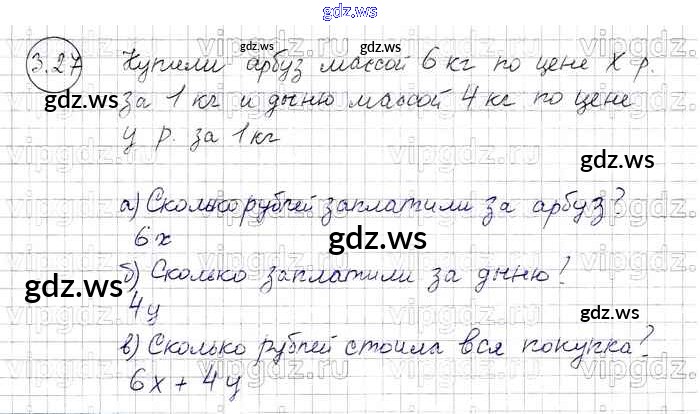 gdz.ws
3.27 Купили арбуз массой 6 кг по цене x р.
за 1 кг и дыню массой 4 кг по цене
y р. за 1 кг
а) Сколько рублей заплатили за арбуз?
6x
б) Сколько заплатили за дыню?
4y
в) Сколько рублей стоила вся покупка?
6x + 4y
gdz.ws
gdz.ws
gdz.ws
gdz.ws
gdz.ws
gdz.ws
gdz.ws
gdz.ws